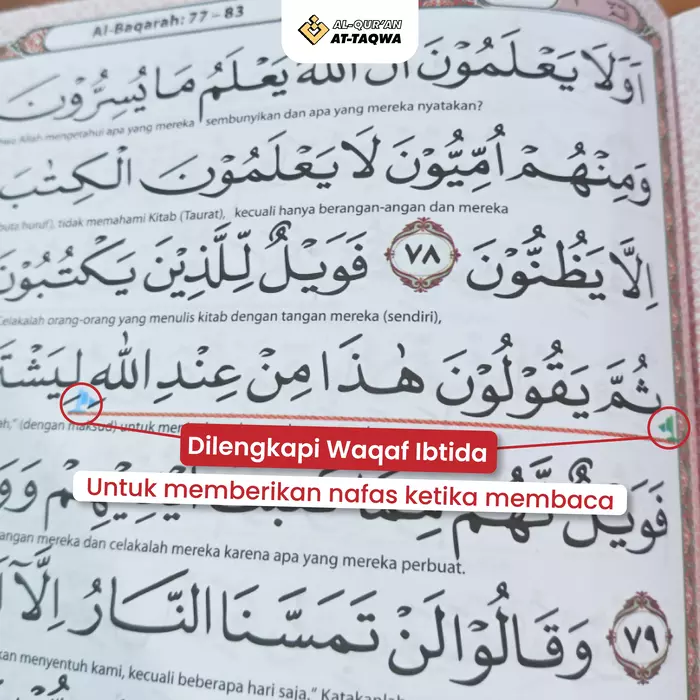 Al-Baqarah: 77 – 83
AL-QUR'AN
AT-TAQWA
اَوَلَا يَعْلَمُوْنَ اَنَّ اللّٰهَ يَعْلَمُ مَا يُسِرُّوْنَ
Allah mengetahui apa yang mereka sembunyikan dan apa yang mereka nyatakan?
وَمِنْهُمْ اُمِّيُّوْنَ لَا يَعْلَمُوْنَ الْكِتٰبَ
buta huruf), tidak memahami Kitab (Taurat), kecuali hanya berangan-angan dan mereka
اِلَّا يَظُنُّوْنَ ٧٨ فَوَيْلٌ لِّلَّذِيْنَ يَكْتُبُوْنَ
Celakalah orang-orang yang menulis kitab dengan tangan mereka (sendiri),
ثُمَّ يَقُوْلُوْنَ هٰذَا مِنْ عِنْدِ اللّٰهِ
(dengan maksud) untuk
Dilengkapi Waqaf Ibtida
Untuk memberikan nafas ketika membaca
فَوَيْلٌ لَّهُمْ
mereka dan celakalah mereka karena apa yang mereka perbuat.
٧٩ وَقَالُوْا لَنْ تَمَسَّنَا النَّارُ اِلَّآ
menyentuh kami, kecuali beberapa hari saja." Katakanlah